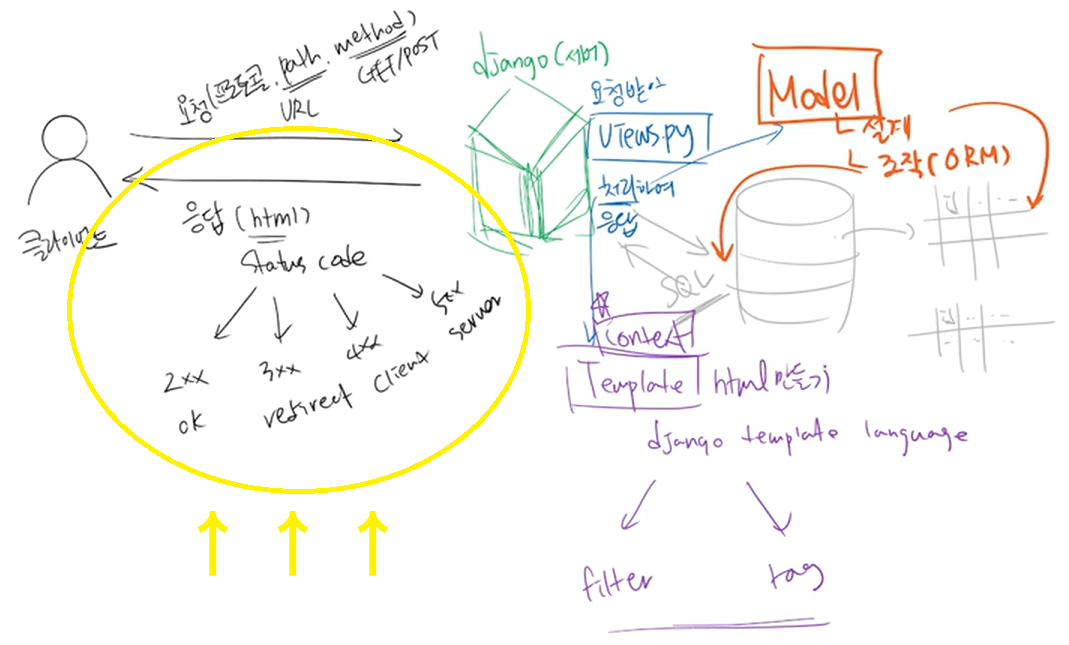 요청(프로토콜. path. method)
URL
GET/POST
클라이언트
응답 (html)
Status code
2xx
3xx
4xx
5xx
ok
redirect
Client
server
django (서버)
요청받아
Views.py
처리하여
응답
Model
└ 설계
└ 조작(ORM)
SQL
Context
Template
html 만들기
django template language
filter
tag